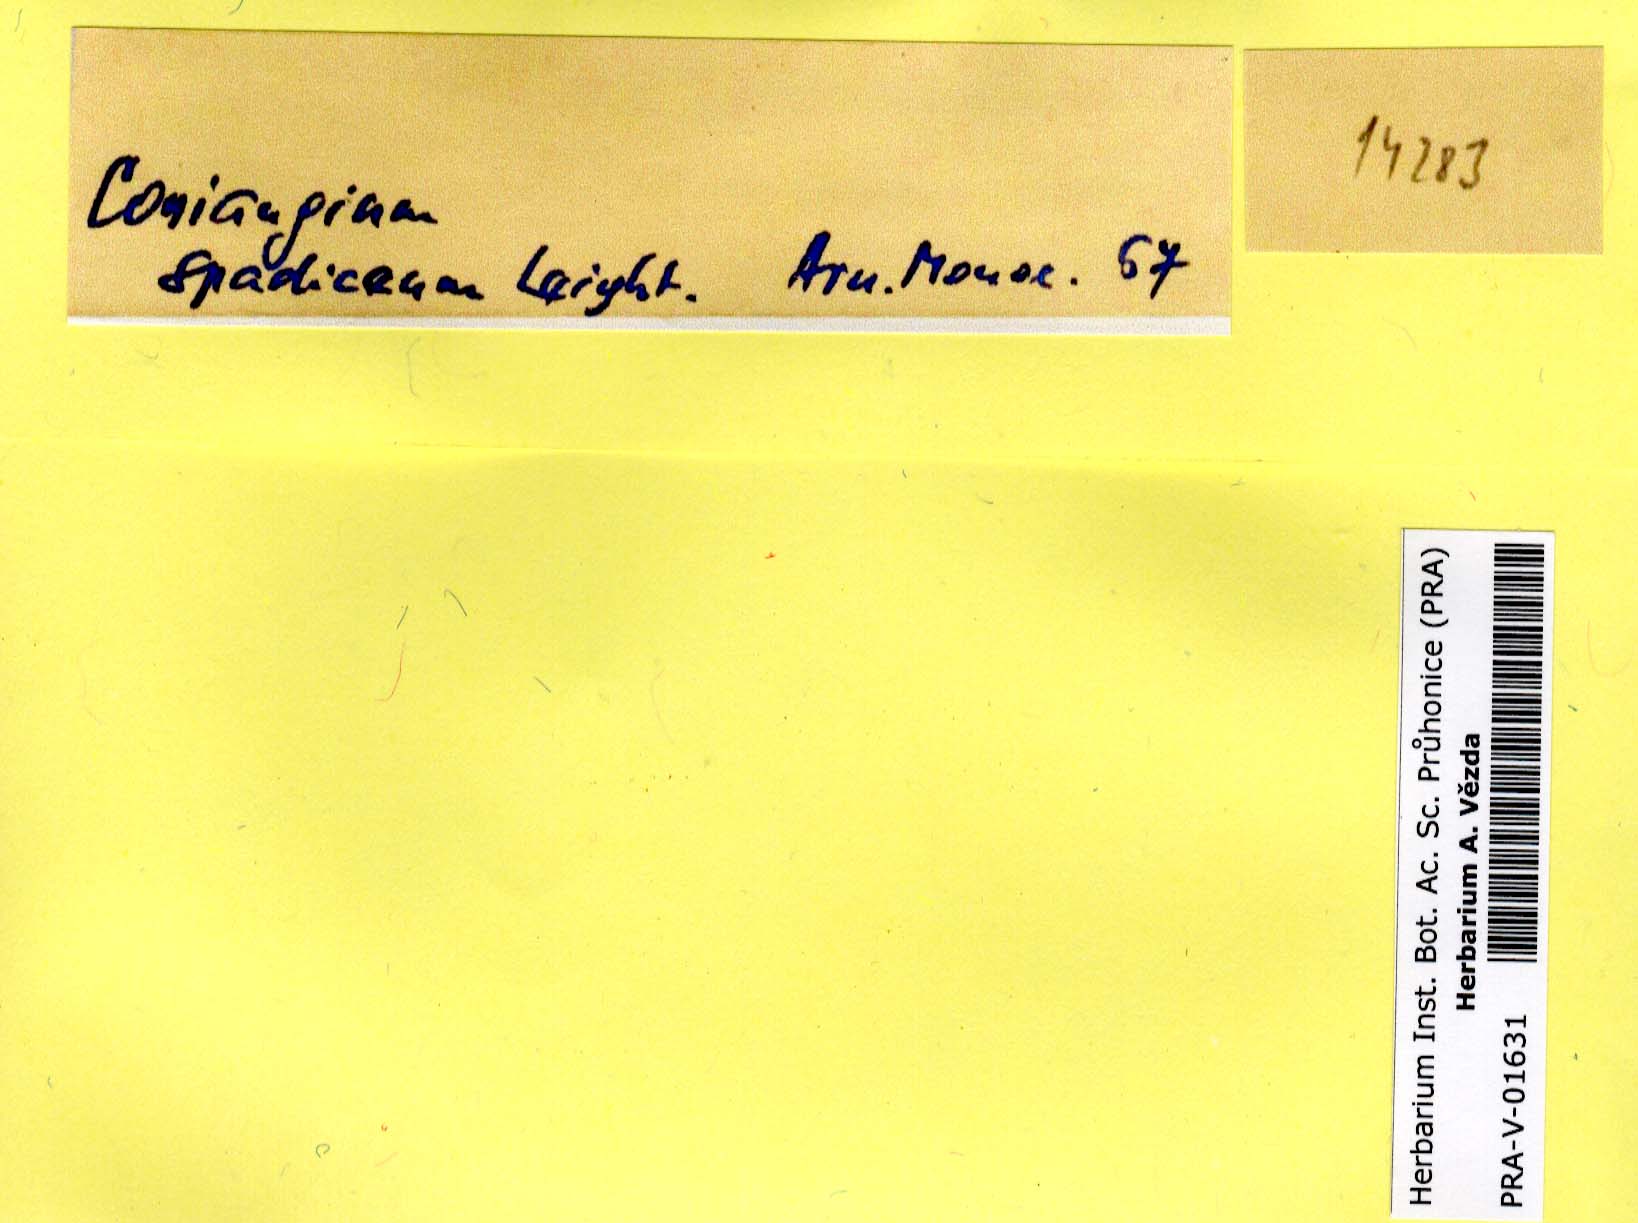 Coniangium
spadiceum Leight. Arn. Monac. 67
14283
Herbarium Inst. Bot. Ac. Sc. Průhonice (PRA)
Herbarium A. Vězda
PRA-V-01631